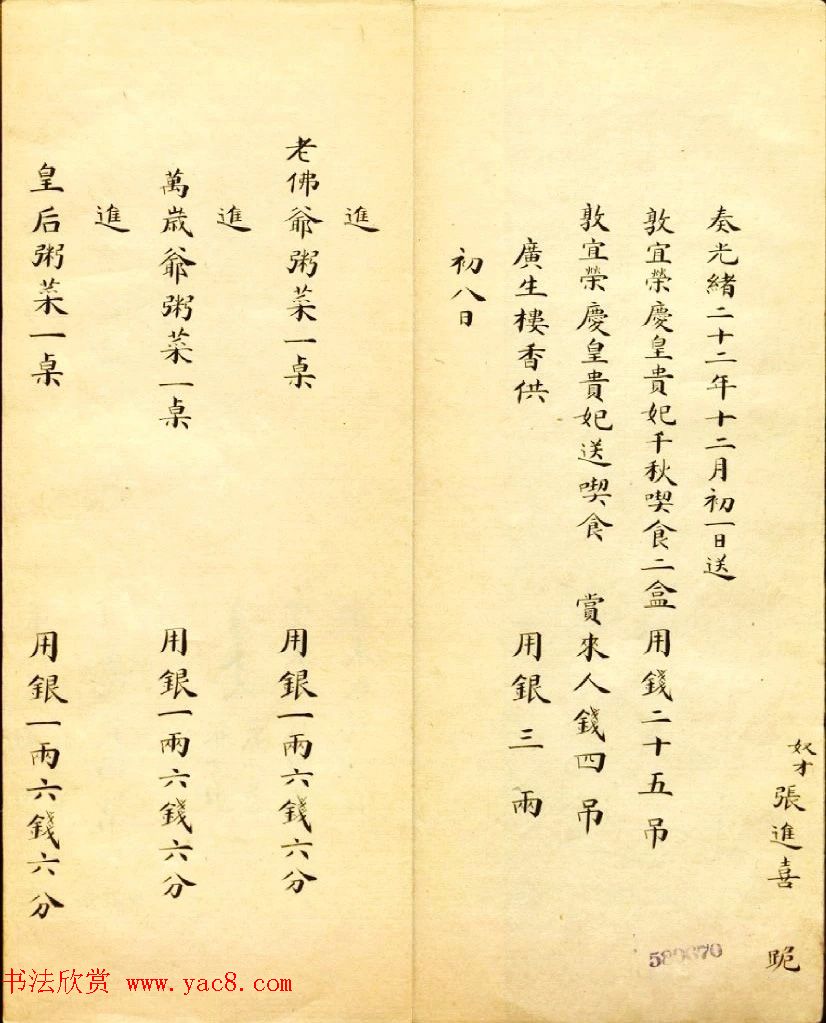 奴才張進喜 跪
奏光緒二十二年十二月初一日送
敦宜榮慶皇貴妃千秋喫食二盒用錢二十五吊
敦宜榮慶皇貴妃送喫食 賞來人錢四吊
廣生樓香供 用銀三兩
初八日
進
老佛爺粥菜一桌 用銀一兩六錢六分
進
萬歲爺粥菜一桌 用銀一兩六錢六分
進
皇后粥菜一桌 用銀一兩六錢六分
书法欣赏 www.yac8.com